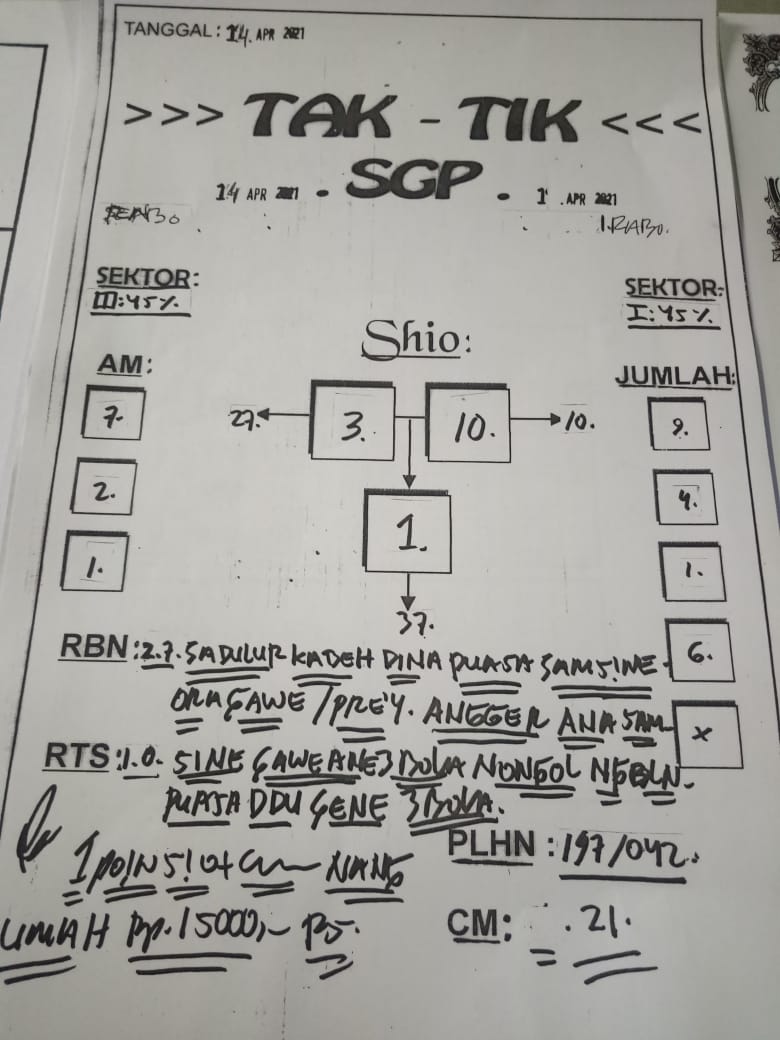 TANGGAL: 14. APR 2021
>>> TAK - TIK <<<
. SGP .
14 APR 2021
1 . APR 2021
1.RABO.
SEKTOR:
III:45%.
SEKTOR:
I:45%.
Shio:
AM:
JUMLAH:
7.
27.
3.
10.
10.
9.
2.
4.
1.
1.
1.
37.
6.
x
RBN:2.7. SADULUR KADEH DINA PUASA SAMSINE
ORA GAWE /PREY. ANGGER ANA SAM
RTS:1.0. SINE GAWEANE 3 BOLA NONGOL NGBLN.
PUASA DDU GENE 3 BOLA.
PLHN : 197/042.
1 POIN NANG
UMAH Rp. 15000,-
CM: . 21.